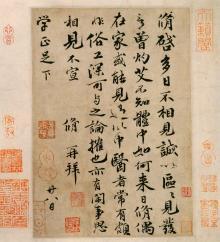 脩啓多日不相見誠以區區見發
言曾灼艾不知體中如何來日脩偶
在家或能見過此中醫者常有頗
非俗工深可與之論權也亦有閑事思
相見不宣 脩再拜
學正足下 廿八日